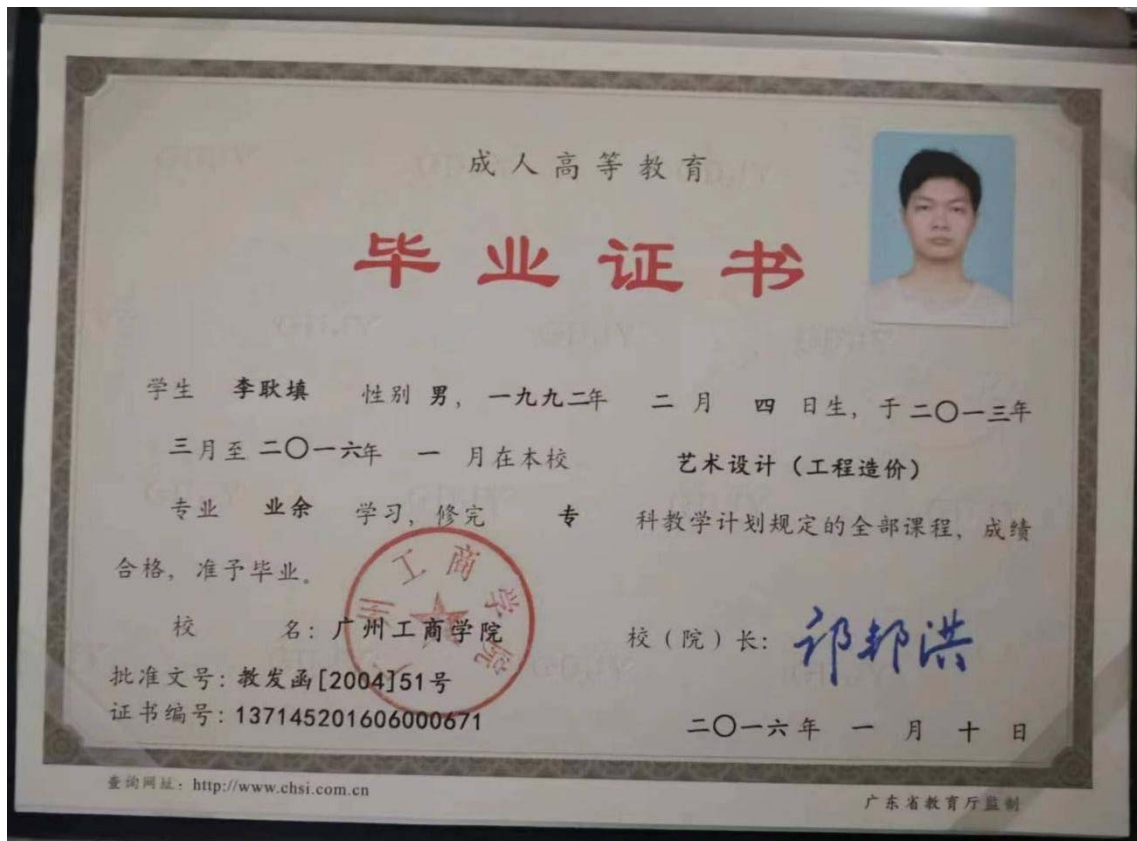 成人高等教育
毕业证书
学生 李耿填 性别 男，一九九二年 二 月 四 日生，于二〇一三年
三月至二〇一六年 一 月在本校 艺术设计（工程造价）
专业 业余 学习，修完 专 科教学计划规定的全部课程，成绩
合格，准予毕业。
州工商学院
校 名：广州工商学院
校（院）长：邝邦洪
批准文号：教发函[2004]51号
证书编号：137145201606000671
二〇一六年 一 月 十 日
查询网址：http://www.chsi.com.cn
广东省教育厅监制